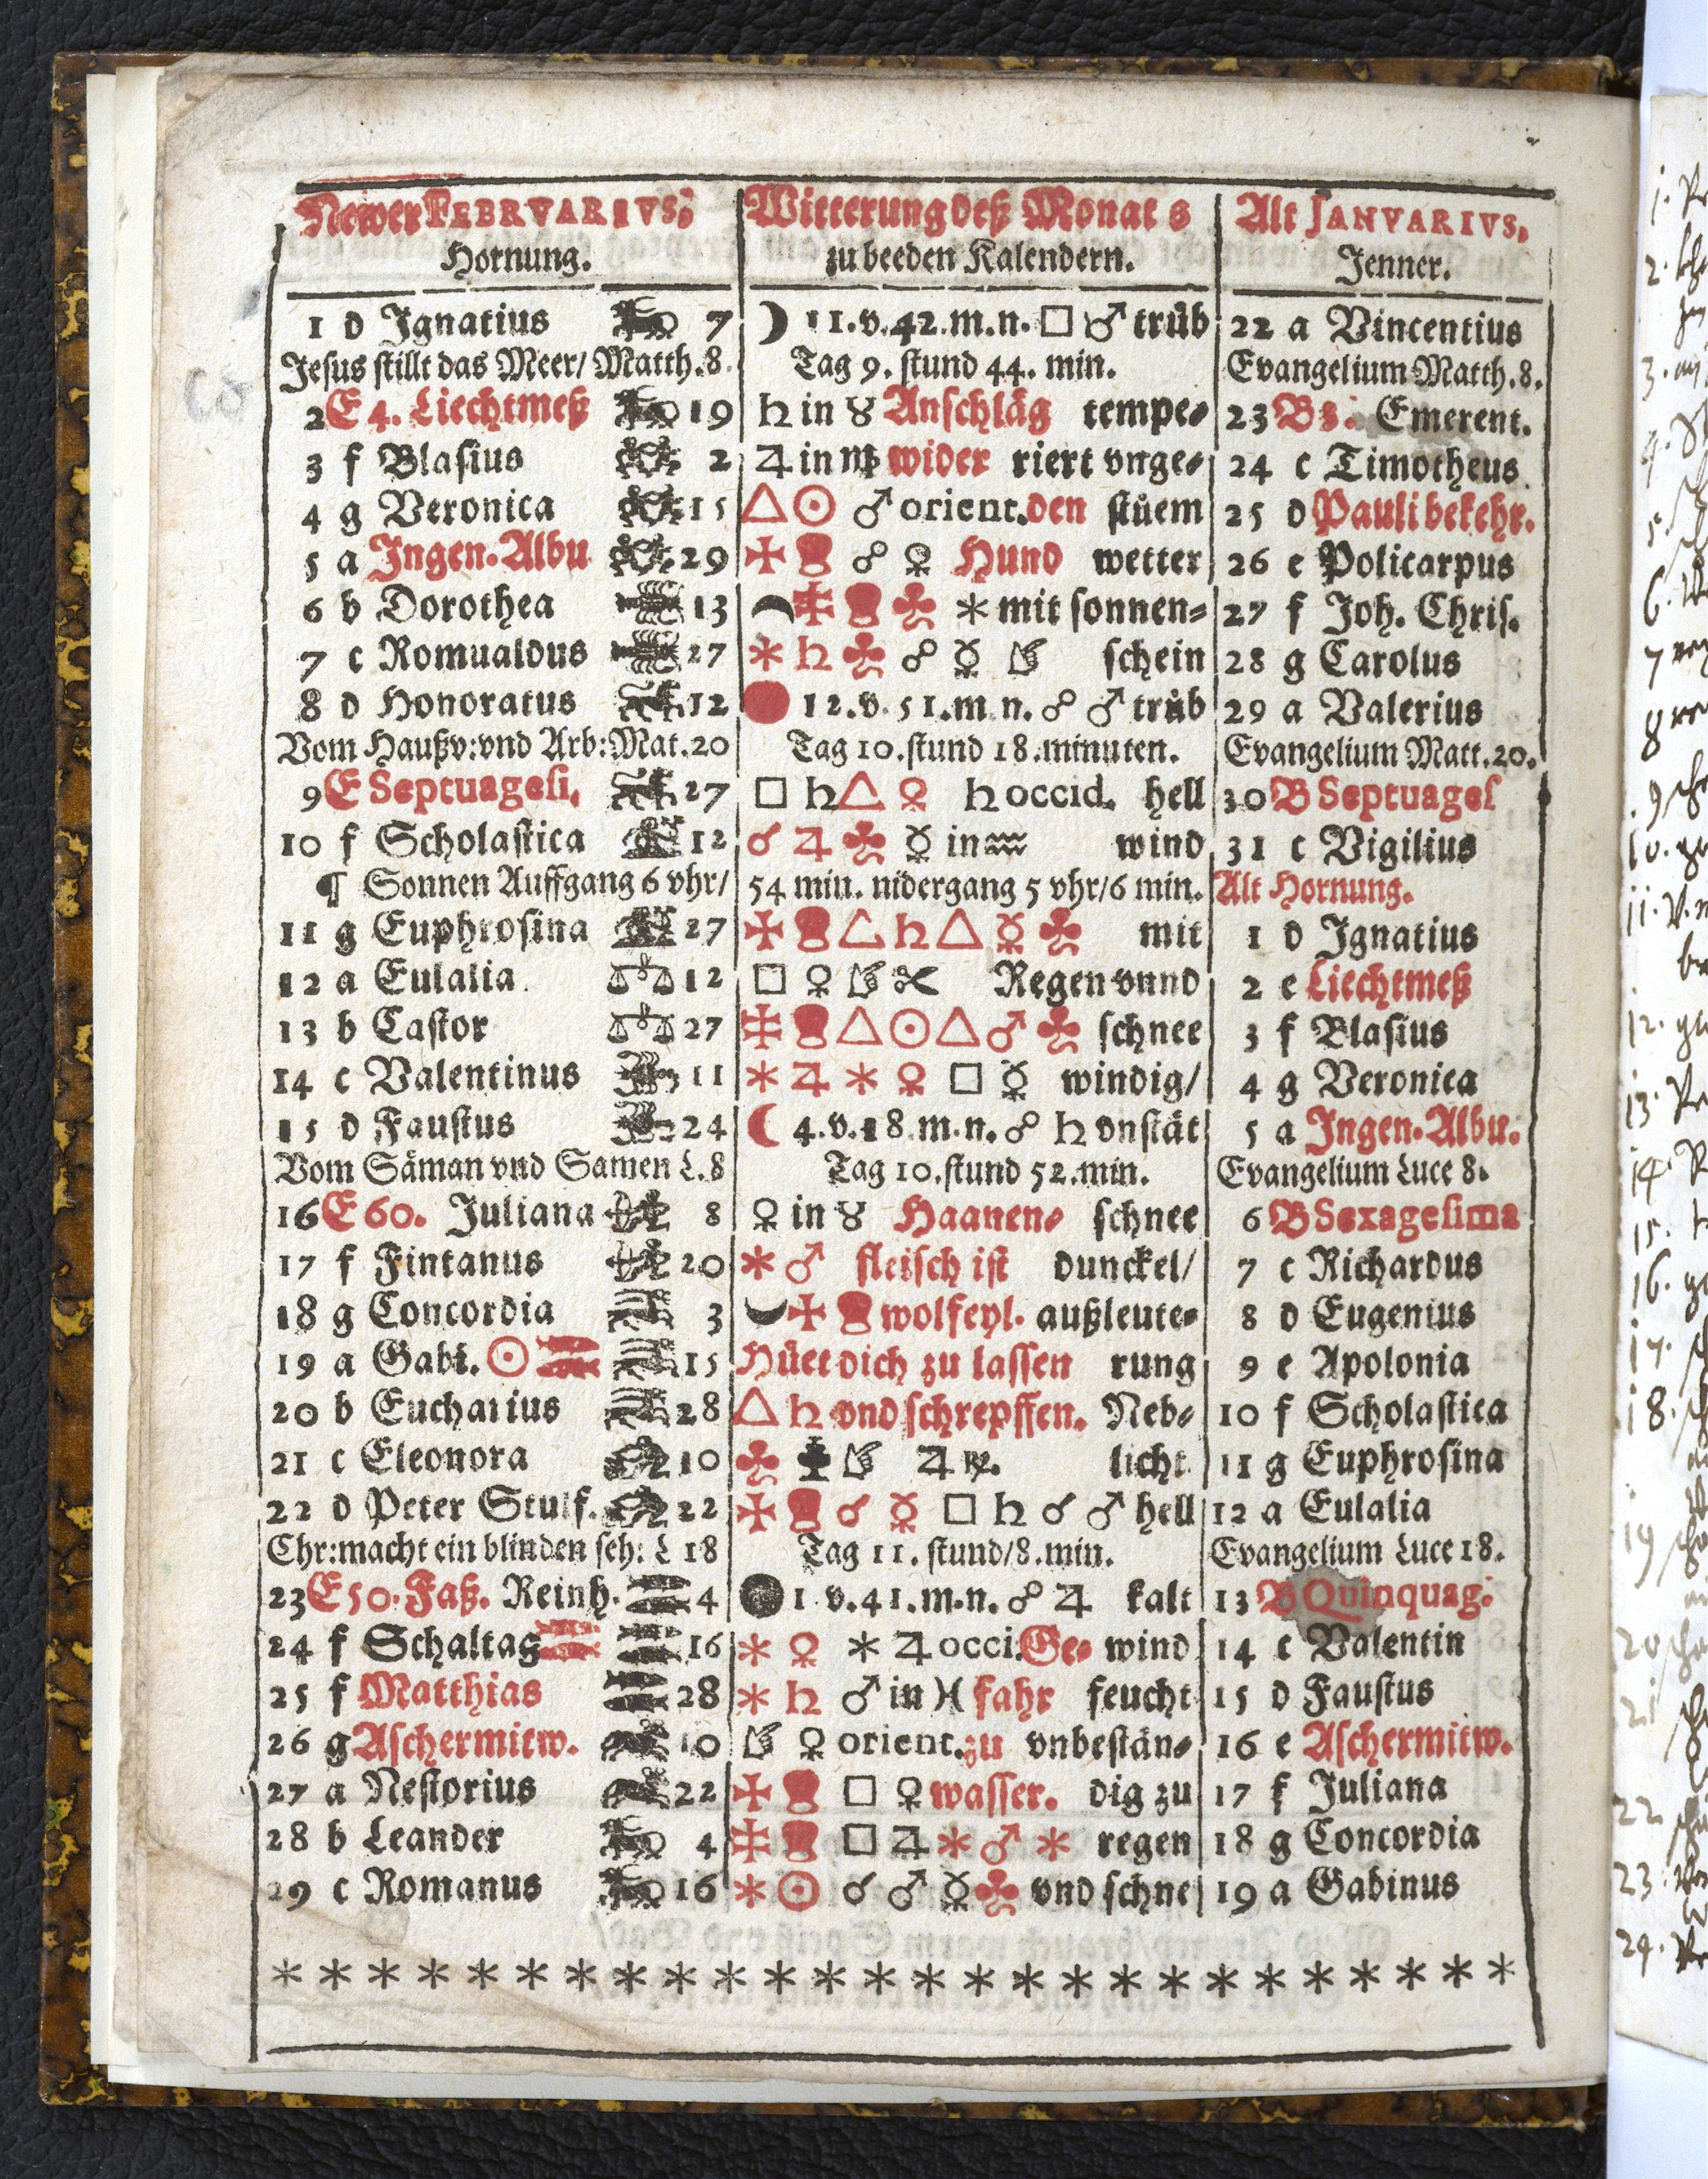 Newer FEBRVARIVS; Witterung deß Monats Alt JANVARIVS.
Hornung. zu beeden Kalendern. Jenner.
1 d Ignatius 7 ☽ 11.v.42.m.n. □ ♂ trüb 22 a Vincentius
Jesus stillt das Meer/ Matth.8. Tag 9. stund 44. min. Evangelium Matth.8.
2 E 4. Liechtmeß 19 ♄ in ♉ Anschläg tempe- 23 B 3. Emerent.
3 f Blasius 2 ♃ in ♍ wider riert vnge- 24 c Timotheus.
4 g Veronica 15 △ ☉ ♂ orient. den stüem 25 d Pauli bekehr.
5 a Ingen. Albu 29 ☍ ♀ Hund wetter 26 e Policarpus
6 b Dorothea 13 ⚹ mit sonnen- 27 f Joh. Chris.
7 c Romualdus 27 ⚹ ♄ ☍ ☿ schein 28 g Carolus
8 d Honoratus 12 12.v.51.m.n. ☍ ♂ trüb 29 a Valerius
Vom Haußv:vnd Arb:Mat.20 Tag 10.stund 18.minuten. Evangelium Matt.20.
9 E Septuagesi. 27 □ ♄ △ ♀ ♄ occid. hell 30 B Septuages
10 f Scholastica 12 ☌ ♃ ☿ in ♒ wind 31 c Vigilius
¶ Sonnen Auffgang 6 vhr/ 54 min. nidergang 5 vhr/6 min. Alt Hornung.
11 g Euphrosina 27 △ ♄ △ ☿ mit 1 d Ignatius
12 a Eulalia. 12 □ ♀ Regen vnnd 2 e Liechtmeß
13 b Castor 27 △ ☉ △ ♂ schnee 3 f Blasius
14 c Valentinus 11 ⚹ ♃ ⚹ ♀ □ ☿ windig/ 4 g Veronica
15 d Faustus 24 ☾ 4.v.18.m.n. ☍ ♄ vnstät 5 a Ingen. Albu.
Vom Säman vnd Samen L.8 Tag 10.stund 52.min. Evangelium Luce 8.
16 E 60. Juliana 8 ♀ in ♉ Haanen- schnee 6 B Sexagesima
17 f Fintanus 20 ⚹ ♂ fleisch ist dunckel/ 7 c Richardus
18 g Concordia 3 wolfeyl. außleute- 8 d Eugenius
19 a Gabi. ☉ 15 Hüet dich zu lassen rung 9 e Apolonia
20 b Eucharius 28 △ ♄ vnd schrepffen. Neb- 10 f Scholastica
21 c Eleonora 10 ♃ licht 11 g Euphrosina
22 d Peter Stulf. 22 ☌ ☿ □ ♄ ☌ ♂ hell 12 a Eulalia
Chr:macht ein blinden seh: L 18 Tag 11. stund/8.min. Evangelium Luce 18.
23 E 50. Faß. Reinh. 4 1 v.41.m.n. ☍ ♃ kalt 13 B Quinquag.
24 f Schaltag 16 ⚹ ♀ ⚹ ♃ occi. Ge- wind 14 c Valentin
25 f Matthias 28 ⚹ ♄ ♂ in ♓ fahr feucht 15 d Faustus
26 g Aschermitw. 10 ♀ orient. zu vnbestän- 16 e Aschermitw.
27 a Nestorius 22 □ ♀ wasser. dig zu 17 f Juliana
28 b Leander 4 □ ♃ ⚹ ♂ ⚹ regen 18 g Concordia
29 c Romanus 16 ⚹ ☉ ☌ ♂ ☿ vnd schne 19 a Gabinus